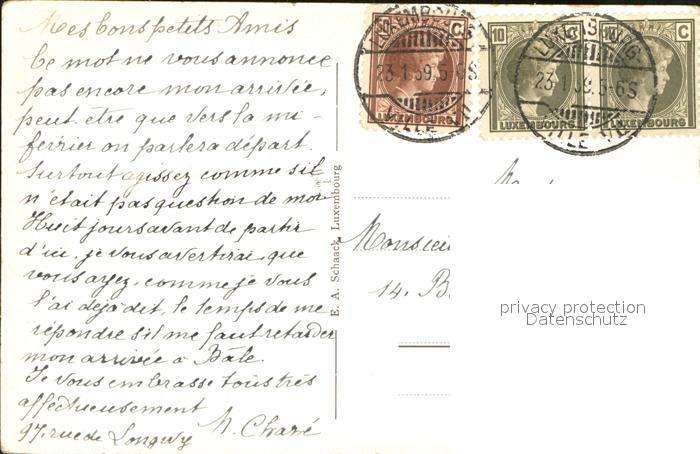 Mes bons petits Amis
Ce mot ne vous annonce
pas encore mon arrivée,
peut etre que vers la mi-
fevrier on parlera départ.
Surtout agissez comme s'il
n'était pas question de moi
Huit jours avant de partir
d'ici, je vous avertirai, que
vous ayez, comme je vous
l'ai déjà dit, le temps de me
répondre s'il me faut retarder
mon arrivée à Bâle.
Je vous embrasse tous très
affectueusement
97, rue de Longwy
E. A. Schaack, Luxembourg
10 C
LUXEMBOURG
10 C
LUXEMBOURG
10 C
LUXEMBOURG
LUXEMBOURG
23.1.39.5-6S
VILLE
LUXEMBOURG
23.1.39.5-6S
VILLE
Monsieu
14. B
privacy protection
Datenschutz